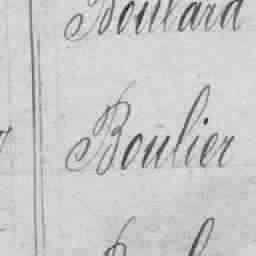 Boulard
Boulier